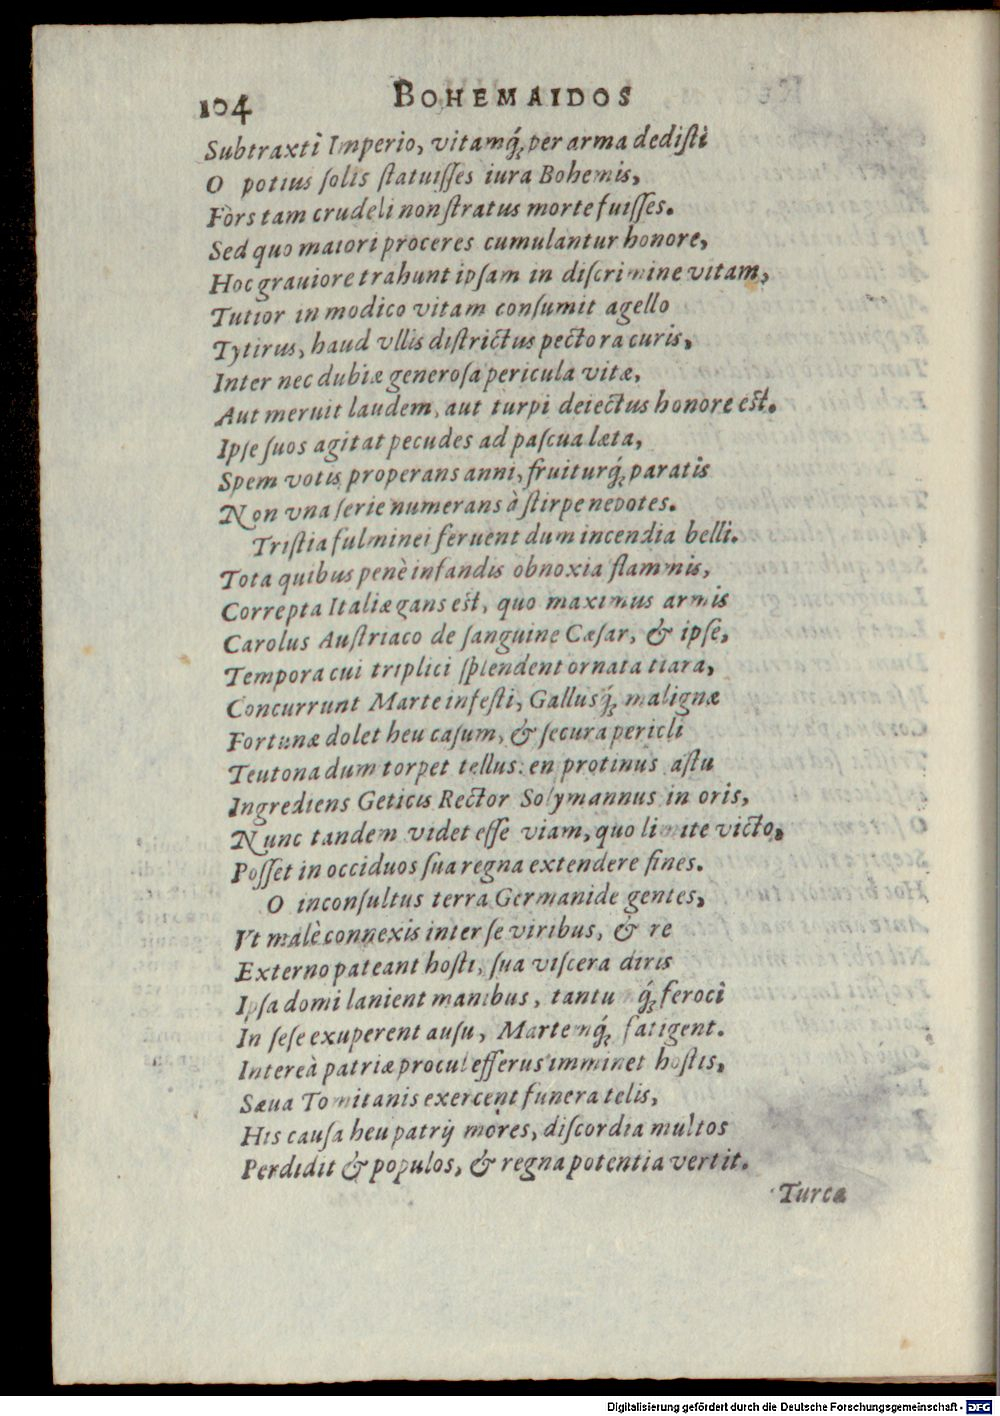 104 BOHEMAIDOS
Subtraxti Imperio, vitamq́; per arma dedisti
O potius solis statuisses iura Bohemis,
Fors tam crudeli non stratus morte fuisses.
Sed quo maiori proceres cumulantur honore,
Hoc grauiore trahunt ipsam in discrimine vitam,
Tutior in modico vitam consumit agello
Tytirus, haud vllis districtus pectora curis,
Inter nec dubiæ generosa pericula vitæ,
Aut meruit laudem, aut turpi deiectus honore est.
Ipse suos agitat pecudes ad pascua læta,
Spem votis properans anni, fruiturq́; paratis
Non vna serie numerans à stirpe nepotes.
Tristia fulminei feruent dum incendia belli.
Tota quibus penè infandis obnoxia flammis,
Correpta Italiæ gans est, quo maximus armis
Carolus Austriaco de sanguine Cæsar, & ipse,
Tempora cui triplici splendent ornata tiara,
Concurrunt Marte infesti, Gallusq́; malignæ
Fortunæ dolet heu casum, & secura pericli
Teutona dum torpet tellus: en protinus astu
Ingrediens Geticis Rector Solymannus in oris,
Nunc tandem videt esse viam, quo limite victo,
Posset in occiduos sua regna extendere fines.
O inconsultus terra Germanide gentes,
Vt malè connexis inter se viribus, & re
Externo pateant hosti, sua viscera diris
Ipsa domi lanient manibus, tantu q́; feroci
In sese exuperent ausu, Martemq́; fatigent.
Intereà patriæ procul efferus imminet hostis,
Sæua Tomitanis exercent funera telis,
His causa heu patrij mores, discordia multos
Perdidit & populos, & regna potentia vertit.
Turca
Digitalisierung gefördert durch die Deutsche Forschungsgemeinschaft - DFG